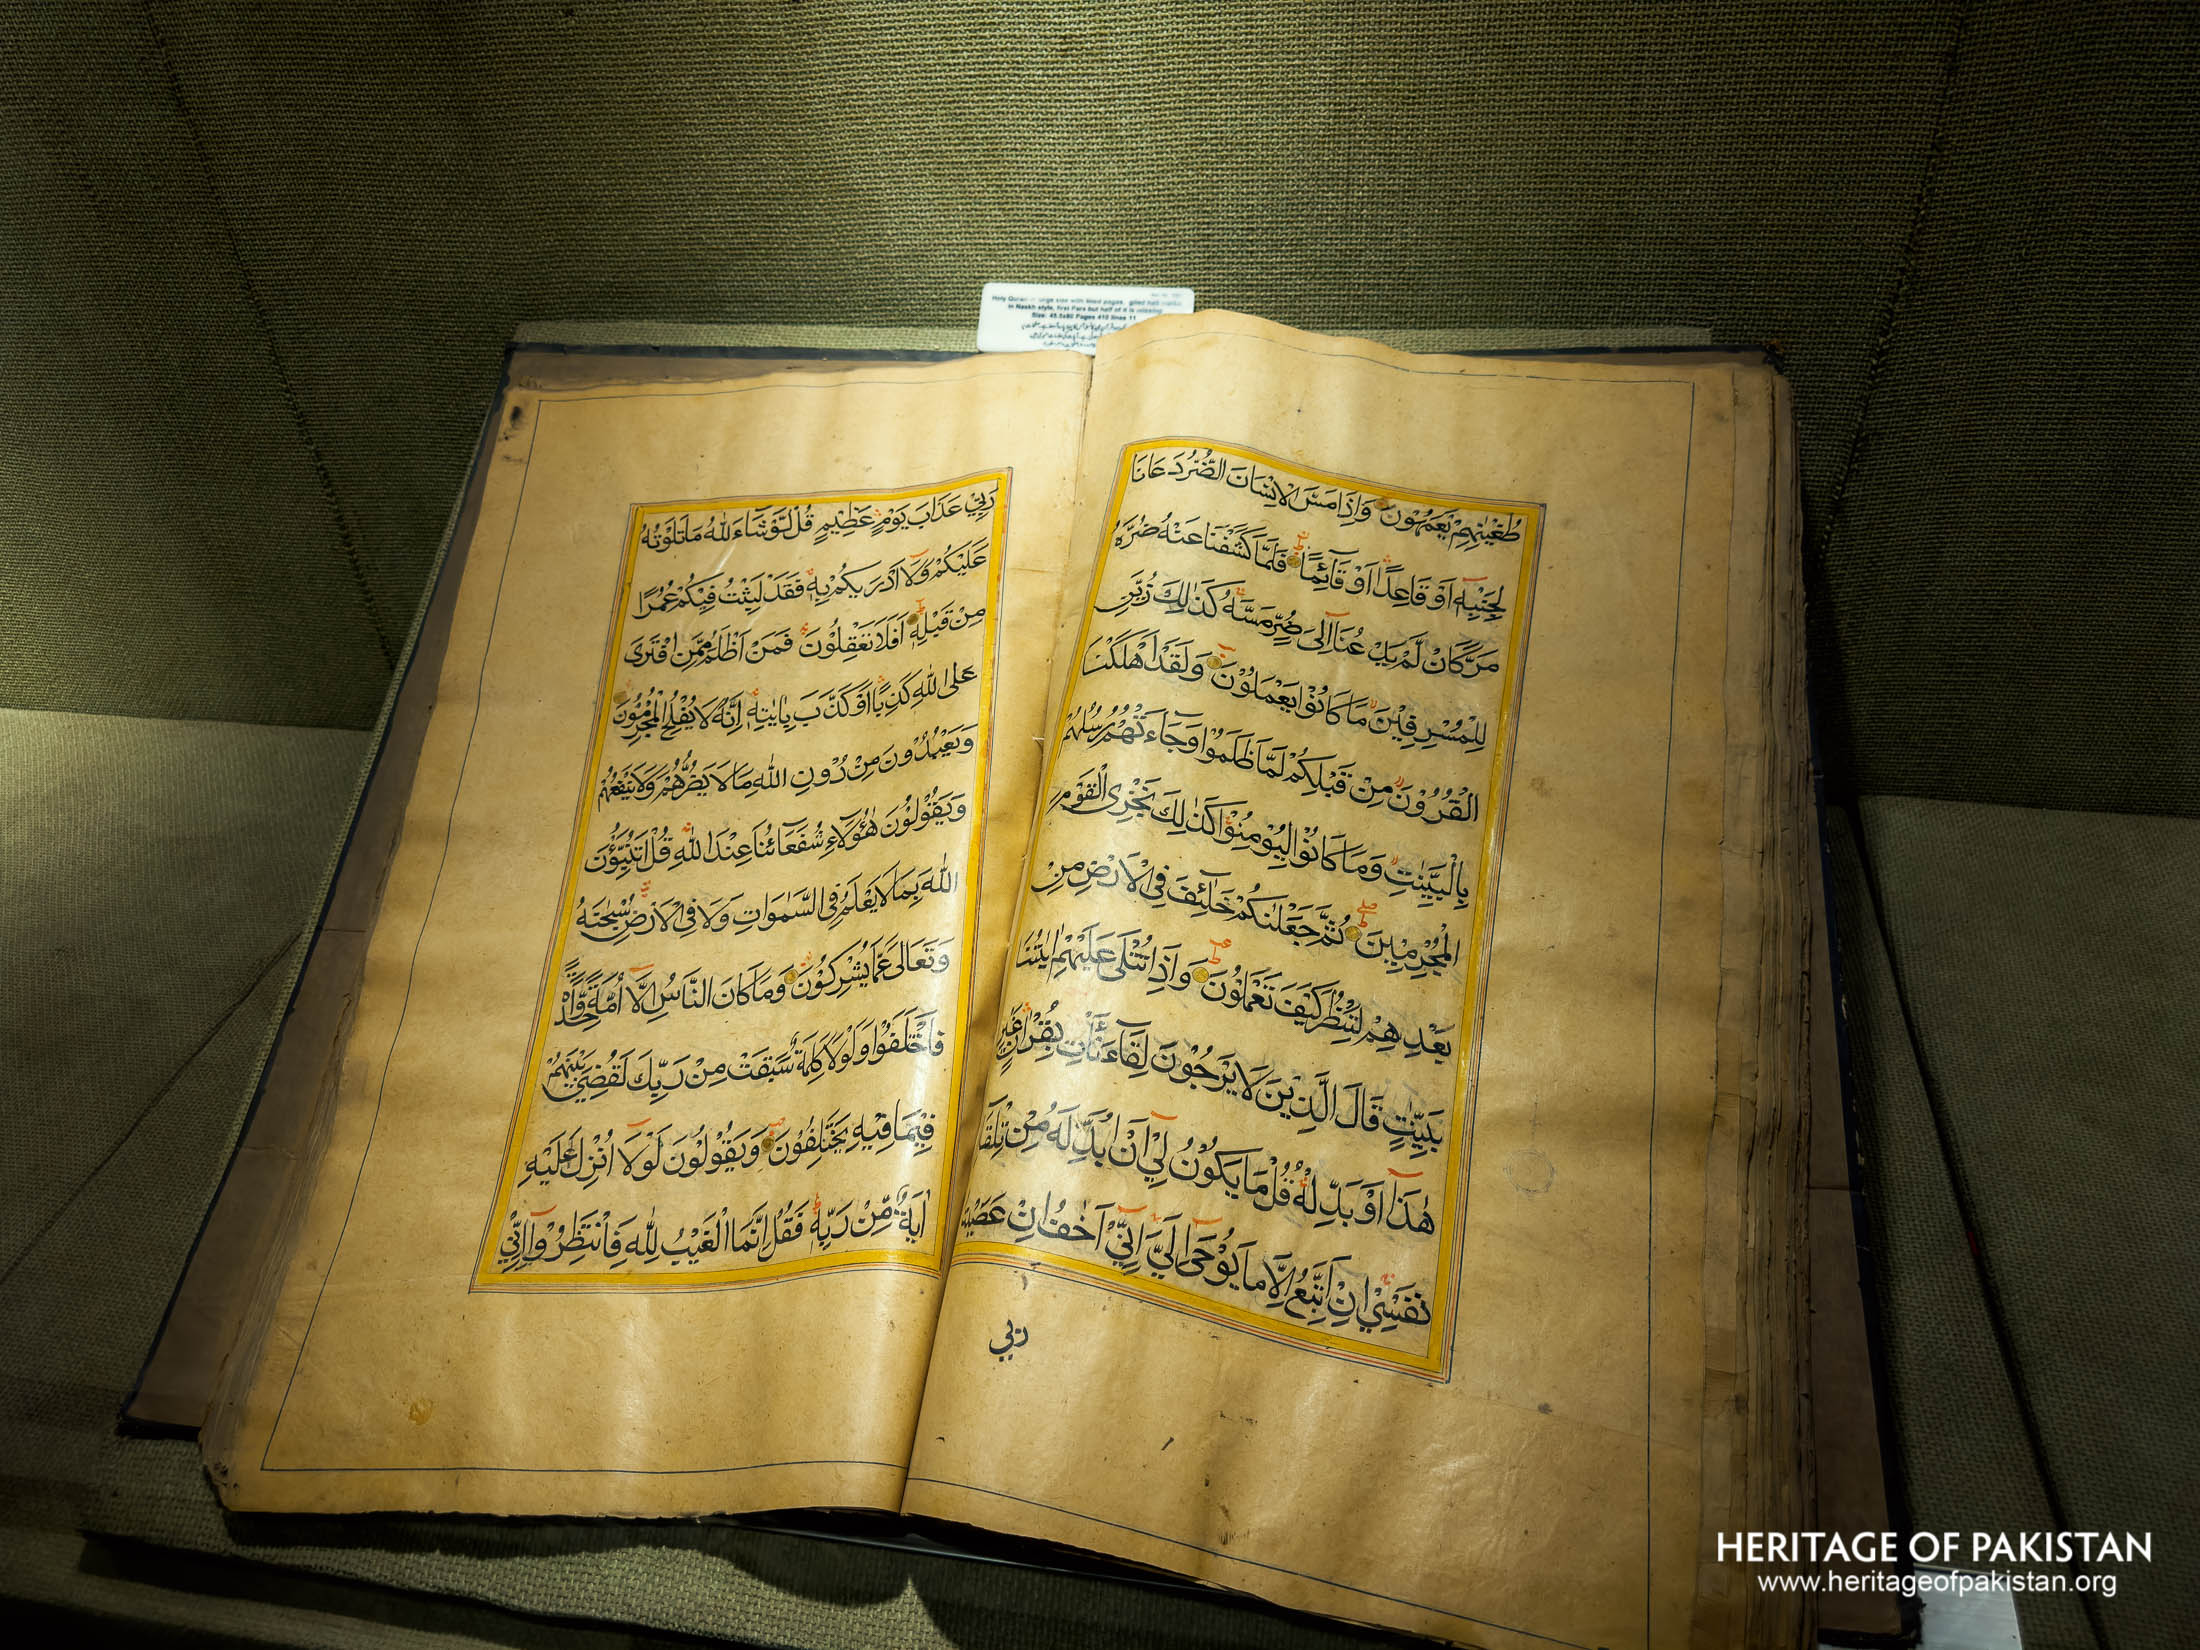 Holy Quran large size with lined pages, gilded
in Naskh style, first Para but half of it is missing
Pages 410 lines 11
طُغْيَٰنِهِمْ يَعْمَهُوْنَ وَاِذَا مَسَّ الْاِنْسَانَ الضُّرُّ دَعَانَا
لِجَنْۢبِهٖٓ اَوْ قَاعِدًا اَوْ قَآئِمًا فَلَمَّا كَشَفْنَا عَنْهُ ضُرَّهٗ
مَرَّ كَاَنْ لَّمْ يَدْعُنَآ اِلٰى ضُرٍّ مَّسَّهٗ كَذٰلِكَ زُيِّنَ
لِلْمُسْرِفِيْنَ مَا كَانُوْا يَعْمَلُوْنَ وَلَقَدْ اَهْلَكْنَا
الْقُرُوْنَ مِنْ قَبْلِكُمْ لَمَّا ظَلَمُوْا وَجَآءَتْهُمْ رُسُلُهُمْ
بِالْبَيِّنٰتِ وَمَا كَانُوْا لِيُؤْمِنُوْا كَذٰلِكَ نَجْزِى الْقَوْمَ
الْمُجْرِمِيْنَ ثُمَّ جَعَلْنٰكُمْ خَلٰٓئِفَ فِى الْاَرْضِ مِنْ
بَعْدِهِمْ لِنَنْظُرَ كَيْفَ تَعْمَلُوْنَ وَاِذَا تُتْلٰى عَلَيْهِمْ اٰيٰتُنَا
بَيِّنٰتٍ قَالَ الَّذِيْنَ لَا يَرْجُوْنَ لِقَآءَنَا ائْتِ بِقُرْاٰنٍ غَيْرِ
هٰذَآ اَوْ بَدِّلْهُ قُلْ مَا يَكُوْنُ لِيْٓ اَنْ اُبَدِّلَهٗ مِنْ تِلْقَآئِ
نَفْسِيْ اِنْ اَتَّبِعُ اِلَّا مَا يُوْحٰٓى اِلَيَّ اِنِّيْٓ اَخَافُ اِنْ عَصَيْتُ
ربي
رَبِّيْ عَذَابَ يَوْمٍ عَظِيْمٍ قُلْ لَّوْ شَآءَ اللّٰهُ مَا تَلَوْتُهٗ
عَلَيْكُمْ وَلَآ اَدْرٰىكُمْ بِهٖ فَقَدْ لَبِثْتُ فِيْكُمْ عُمُرًا
مِنْ قَبْلِهٖ اَفَلَا تَعْقِلُوْنَ فَمَنْ اَظْلَمُ مِمَّنِ افْتَرٰى
عَلَى اللّٰهِ كَذِبًا اَوْ كَذَّبَ بِاٰيٰتِهٖ اِنَّهٗ لَا يُفْلِحُ الْمُجْرِمُوْنَ
وَيَعْبُدُوْنَ مِنْ دُوْنِ اللّٰهِ مَا لَا يَضُرُّهُمْ وَلَا يَنْفَعُهُمْ
وَيَقُوْلُوْنَ هٰٓؤُلَآءِ شُفَعَآئُنَا عِنْدَ اللّٰهِ قُلْ اَتُنَبِّئُوْنَ
اللّٰهَ بِمَا لَا يَعْلَمُ فِى السَّمٰوَاتِ وَلَا فِى الْاَرْضِ سُبْحٰنَهٗ
وَتَعَالٰى عَمَّا يُشْرِكُوْنَ وَمَا كَانَ النَّاسُ اِلَّآ اُمَّةً وَّاحِدَةً
فَاخْتَلَفُوْا وَلَوْلَا كَلِمَةٌ سَبَقَتْ مِنْ رَبِّكَ لَقُضِيَ بَيْنَهُمْ
فِيْمَا فِيْهِ يَخْتَلِفُوْنَ وَيَقُوْلُوْنَ لَوْلَآ اُنْزِلَ عَلَيْهِ
اٰيَةٌ مِّنْ رَبِّهٖ فَقُلْ اِنَّمَا الْغَيْبُ لِلّٰهِ فَانْتَظِرُوْٓا اِنِّيْ
HERITAGE OF PAKISTAN
www.heritageofpakistan.org